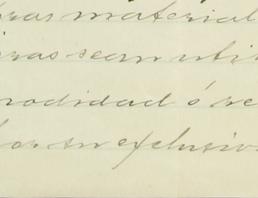 bras material
bras sean uti
modidad ó re
por su exclusiv